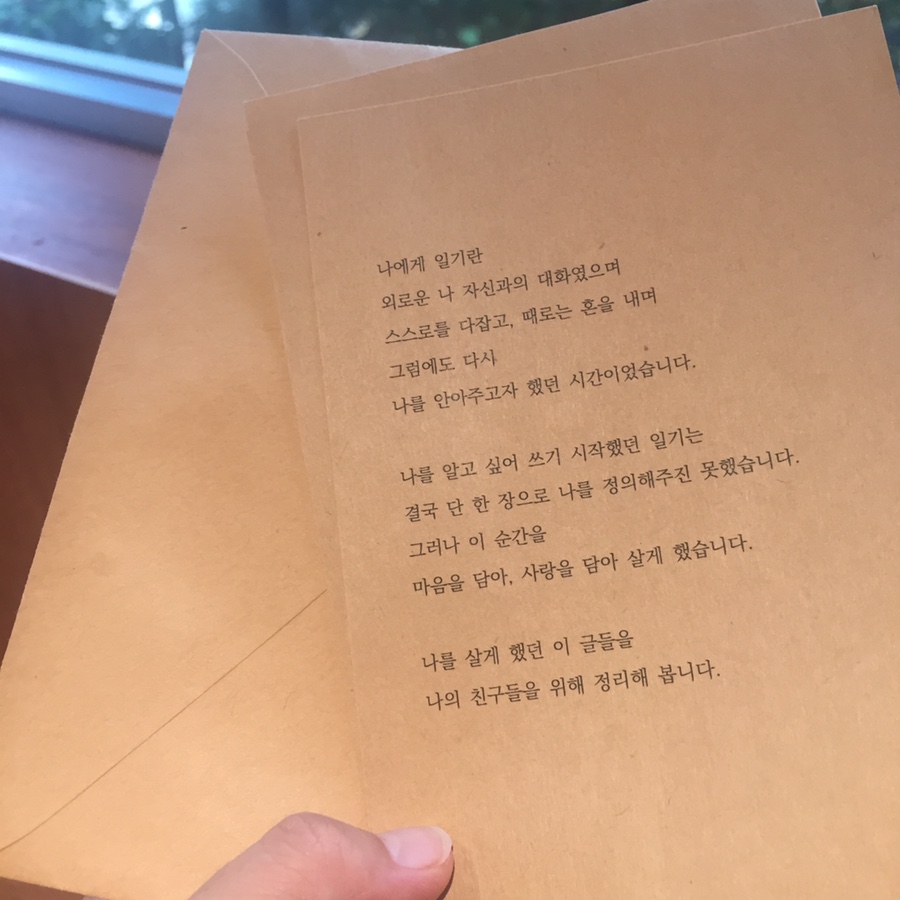 나에게 일기란
외로운 나 자신과의 대화였으며
스스로를 다잡고, 때로는 혼을 내며
그럼에도 다시
나를 안아주고자 했던 시간이었습니다.
나를 알고 싶어 쓰기 시작했던 일기는
결국 단 한 장으로 나를 정의해주진 못했습니다.
그러나 이 순간을
마음을 담아, 사랑을 담아 살게 했습니다.
나를 살게 했던 이 글들을
나의 친구들을 위해 정리해 봅니다.